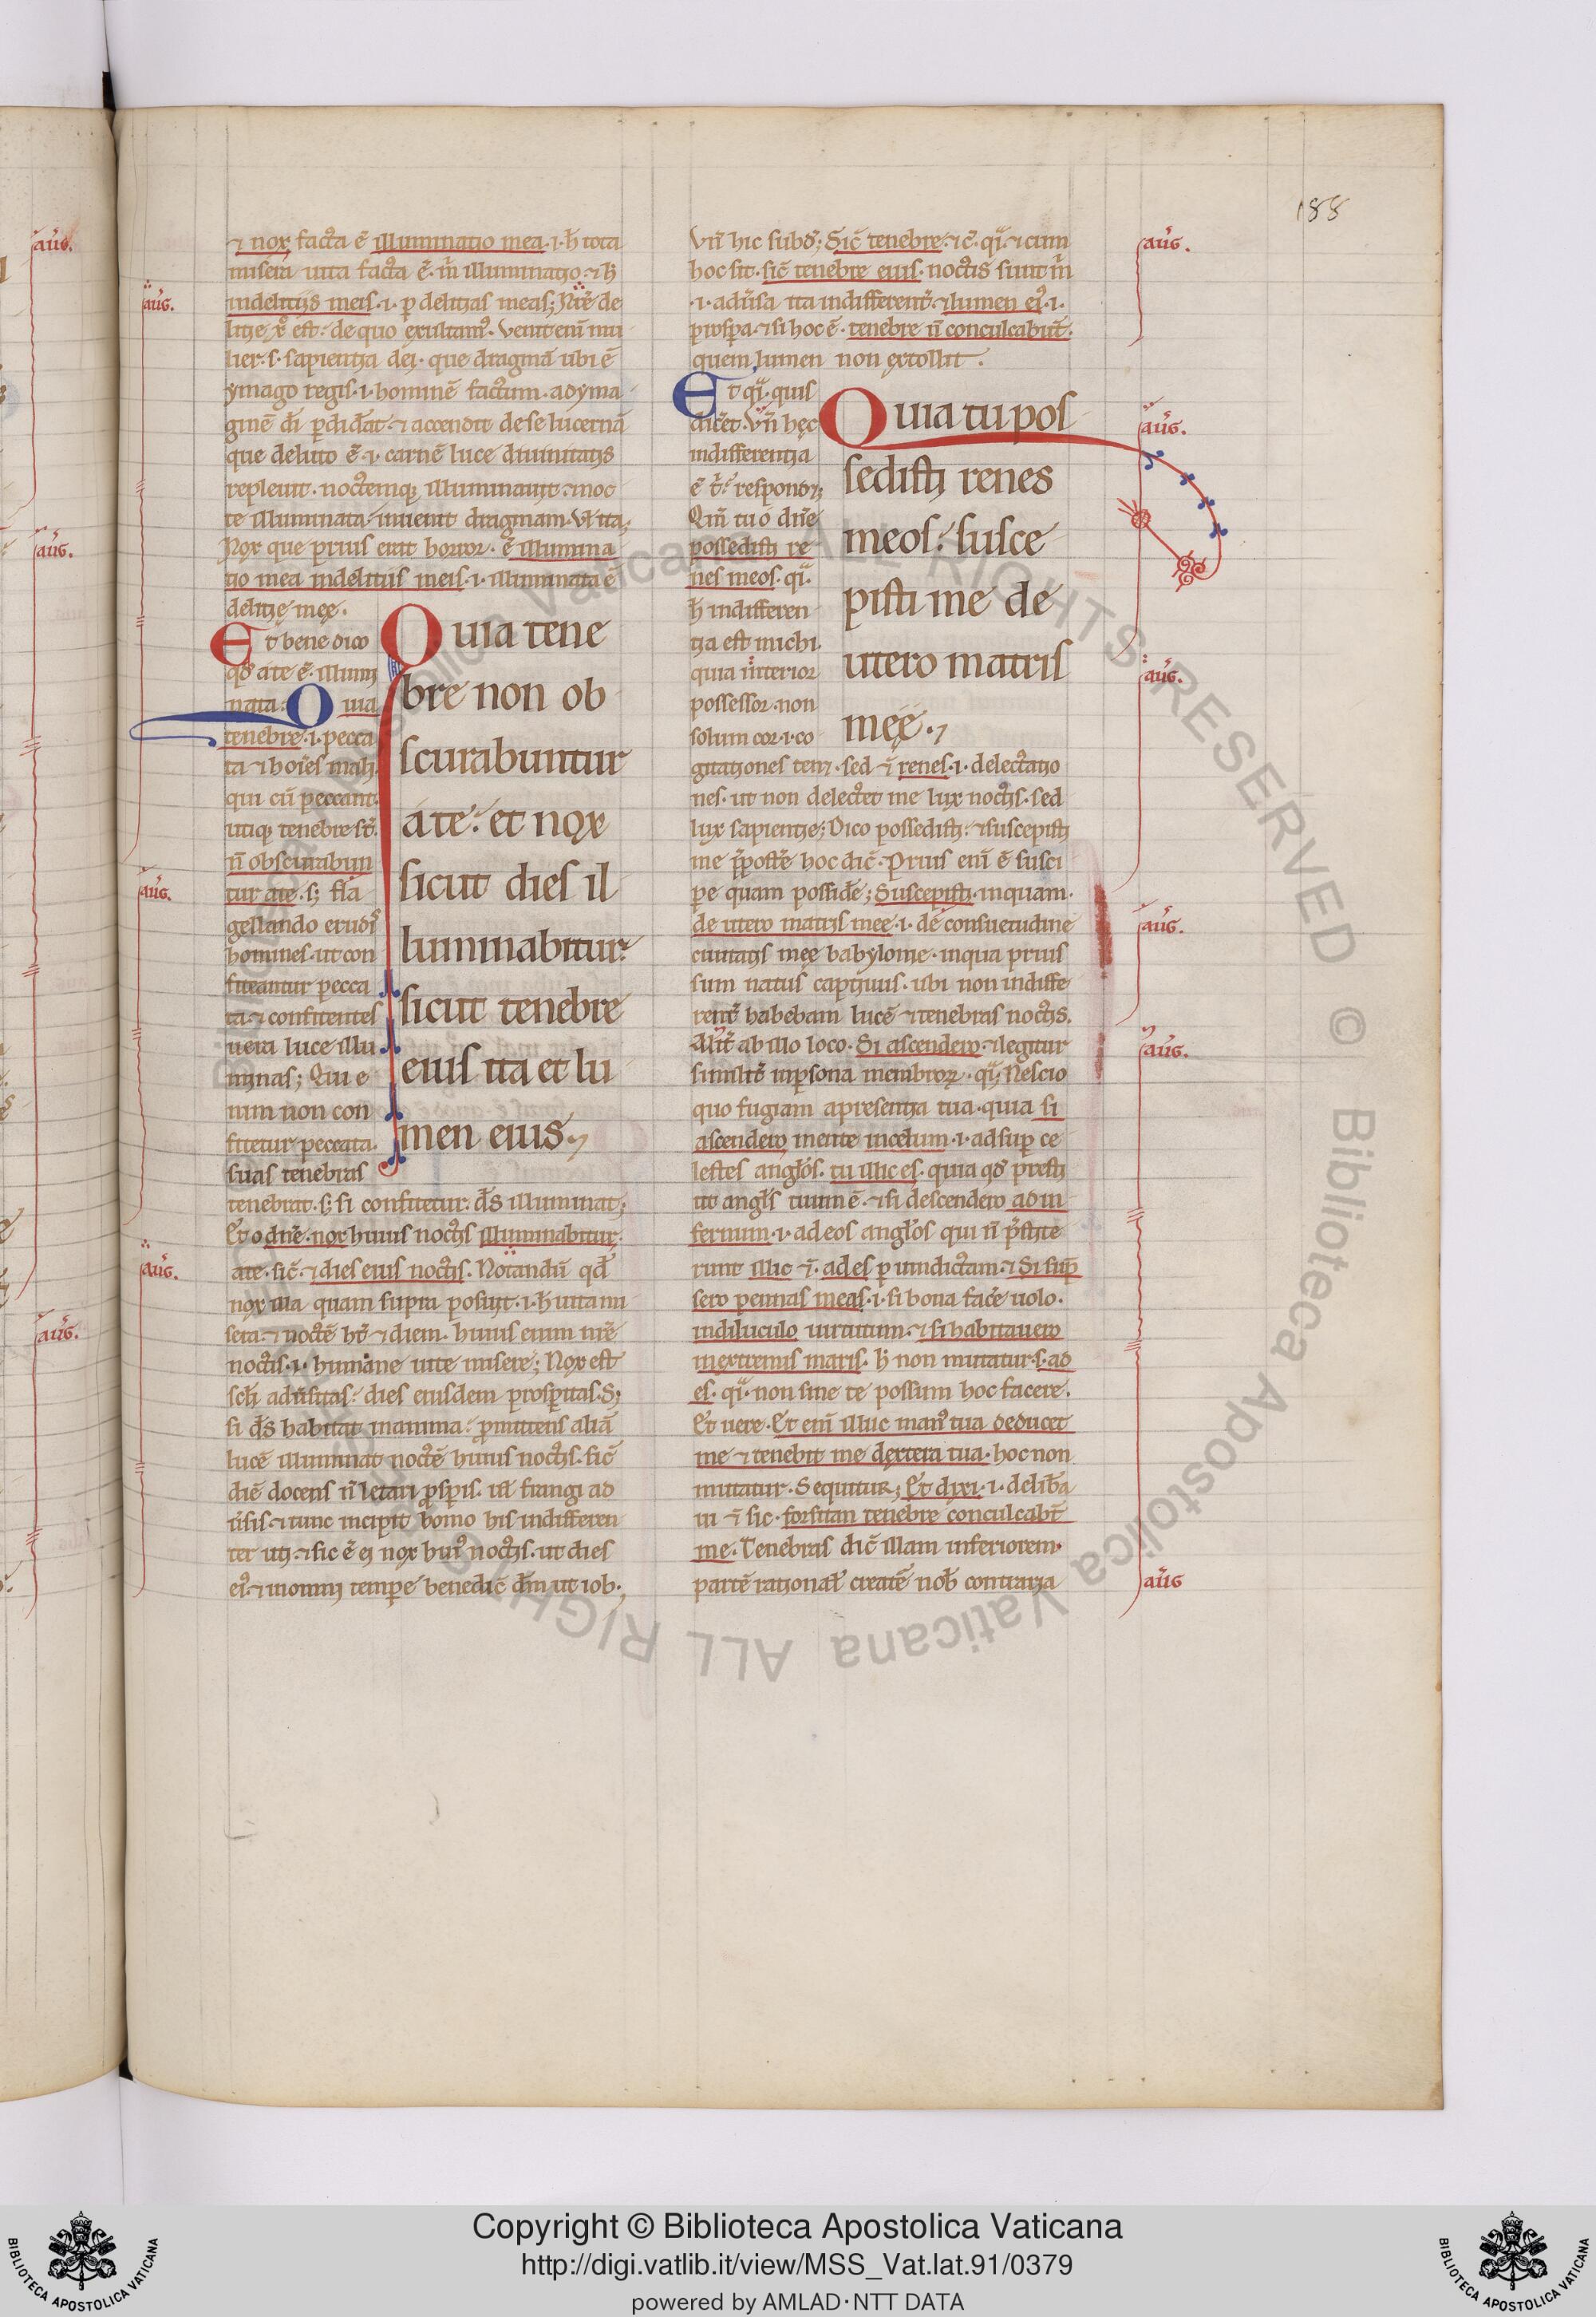 188
⁊ nox facta ē illuminatio mea .i. h̄ tota
misera uita facta ē. m̄ illuminatio ⁊ h̄
indelitiis meis .i. ꝑ delitias meas; Nr̄e de
litie xp̄s est. de quo exultamꝰ. Venit eni mu
lier .s. sapientia dei. que dragmā ubi ē
ymago regis .i. hominē factum. adyma
ginē dī ꝑdidāt. ⁊ accendit de se lucernā
que deluto ē .i. carnē luce diuinitatis
repleuit. noctemqꝫ illuminauit. ⁊ inoc
te illuminata inuenit dragmam. Vl ita.
Nox que prius erat horror. ē illumina
tio mea indelitiis meis .i. illuminata ē
delitie mee.
Et bene dico
qd̄ a te ē illumi
nata. Quia
tenebre .i. pecca
ta ⁊ hoīes mali
qui cū peccant.
utiqꝫ tenebre st̄.
n̄ obscurabun
tur a te. sꝫ fla
gellando erudis
homines. ut con
fiteantur pecca
ta. ⁊ confitentes
uera luce illu
minas; Qui e
nim non con
fitetur peccata.
suas tenebras
Quia tene
bre non ob
scurabuntur
a te. et nox
sicut dies il
luminabitur.
sicut tenebre
eius ita et lu
men eius.
tenebrat. sꝫ si confitetur. d̄s illuminat;
Et o dn̄e. nox huius noctis illuminabitur
a te. sic̄ ⁊ dies eius noctis. Notandū qd̄
nox illa quam supra posuit .i. h̄ uita mi
sera. ⁊ noctē ht̄ ⁊ diem. huius enim nr̄e
noctis .i. humane uite misere; Nox est
adūsitas. dies eiusdem prosꝑitas. Sꝫ
si d̄s habitat in anima. ꝓmittens aliā
lucē illuminat noctē huius noctis. sic̄
diē docens n̄ letari ꝓsꝑis. frangi ad
ūsis. ⁊ tunc incipit homo his indifferen
ter uti. ⁊ sic ē ei nox huiꝰ noctis. ut dies
eiꝰ. ⁊ in omni temꝑe benedic̄ dn̄m ut iob.
Vn̄ hic subd̄; Sic̄ tenebre. ⁊ c̄. qͥ. ⁊ cum
hoc sit. sic̄ tenebre eius. noctis sunt m̄
.i. adūsa ita indifferent̄. ⁊ lumen eiꝰ .i.
prosꝑa. ⁊ si hoc ē. tenebre n̄ conculcabūt.
quem lumen non extollit.
Et qͥ. quis
dicet. Vn̄ hec
indifferentia
ē t̄. respond;
Qm̄ tu o dn̄e
possedisti re
nes meos. qͥ.
h̄ indifferen
tia est michi.
quia interior
possessor. non
solum cor .i. co
Quia tu pos
sedisti renes
meos. susce
pisti me de
utero matris
mee.
gitationes tenꝫ. sed ⁊ renes .i. delectatio
nes. ut non delectet me lux noctis. sed
lux sapientie; Dico possedisti. ⁊ suscepisti
me hoc dic̄. Prius eni ē susci
pe quam posside; Suscepisti inquam.
de utero matris mee .i. de consuetudine
ciuitatis mee babylonie. in qua prius
sum natus captiuus. ubi non indiffe
rent̄ habebam lucē ⁊ tenebras noctis.
Alit̄ ab illo loco. Si ascendero. ⁊ legitur
similit̄ inꝑsona membroꝝ. qͥ; Nescio
quo fugiam a presentia tua. quia si
ascendero mente in celum .i. ad suꝑ ce
lestes angl̄os. tu illic es. quia qd̄ presti
tit angl̄s tuum ē. ⁊ si descendero ad in
fernum .i. ad eos angl̄os qui n̄ p̄stite
runt illic ⁊. ades ꝑ uindictam. ⁊ Si sūp
sero pennas meas .i. si bona facē uolo.
in diluculo uirtutum. ⁊ si habitauero
in extremis maris. h̄ non mutatur .s. ad
es. qͥ. non sine te possum hoc facere.
Et uere. Et eni illuc manꝰ tua deducet
me ⁊ tenebit me dextera tua. hoc non
mutatur. Sequitur; Et dixi .i. delib̄a
ui ⁊ sic. forsitan tenebre conculcabt̄
me. Tenebras dic̄ illam inferiorem
partē rational̄ creatē nob̄ contraria
aug.
aug.
aug.
aug.
aug.
aug.
aug.
aug.
aug.
aug.
aug.
aug.
aug
Copyright © Biblioteca Apostolica Vaticana
http://digi.vatlib.it/view/MSS_Vat.lat.91/0379
powered by AMLAD·NTT DATA
BIBLIOTECA APOSTOLICA VATICANA
BIBLIOTECA APOSTOLICA VATICANA
© Biblioteca Apostolica Vaticana ALL RIGHTS RESERVED